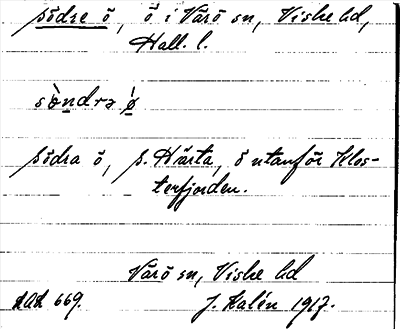 södre ö, ö i Värö sn, Viske hd,
Hall. l.
södra ö, s. Härta, ö utanför Klos-
terfjorden.
Värö sn, Viske hd
669. J. Kalén 1917.